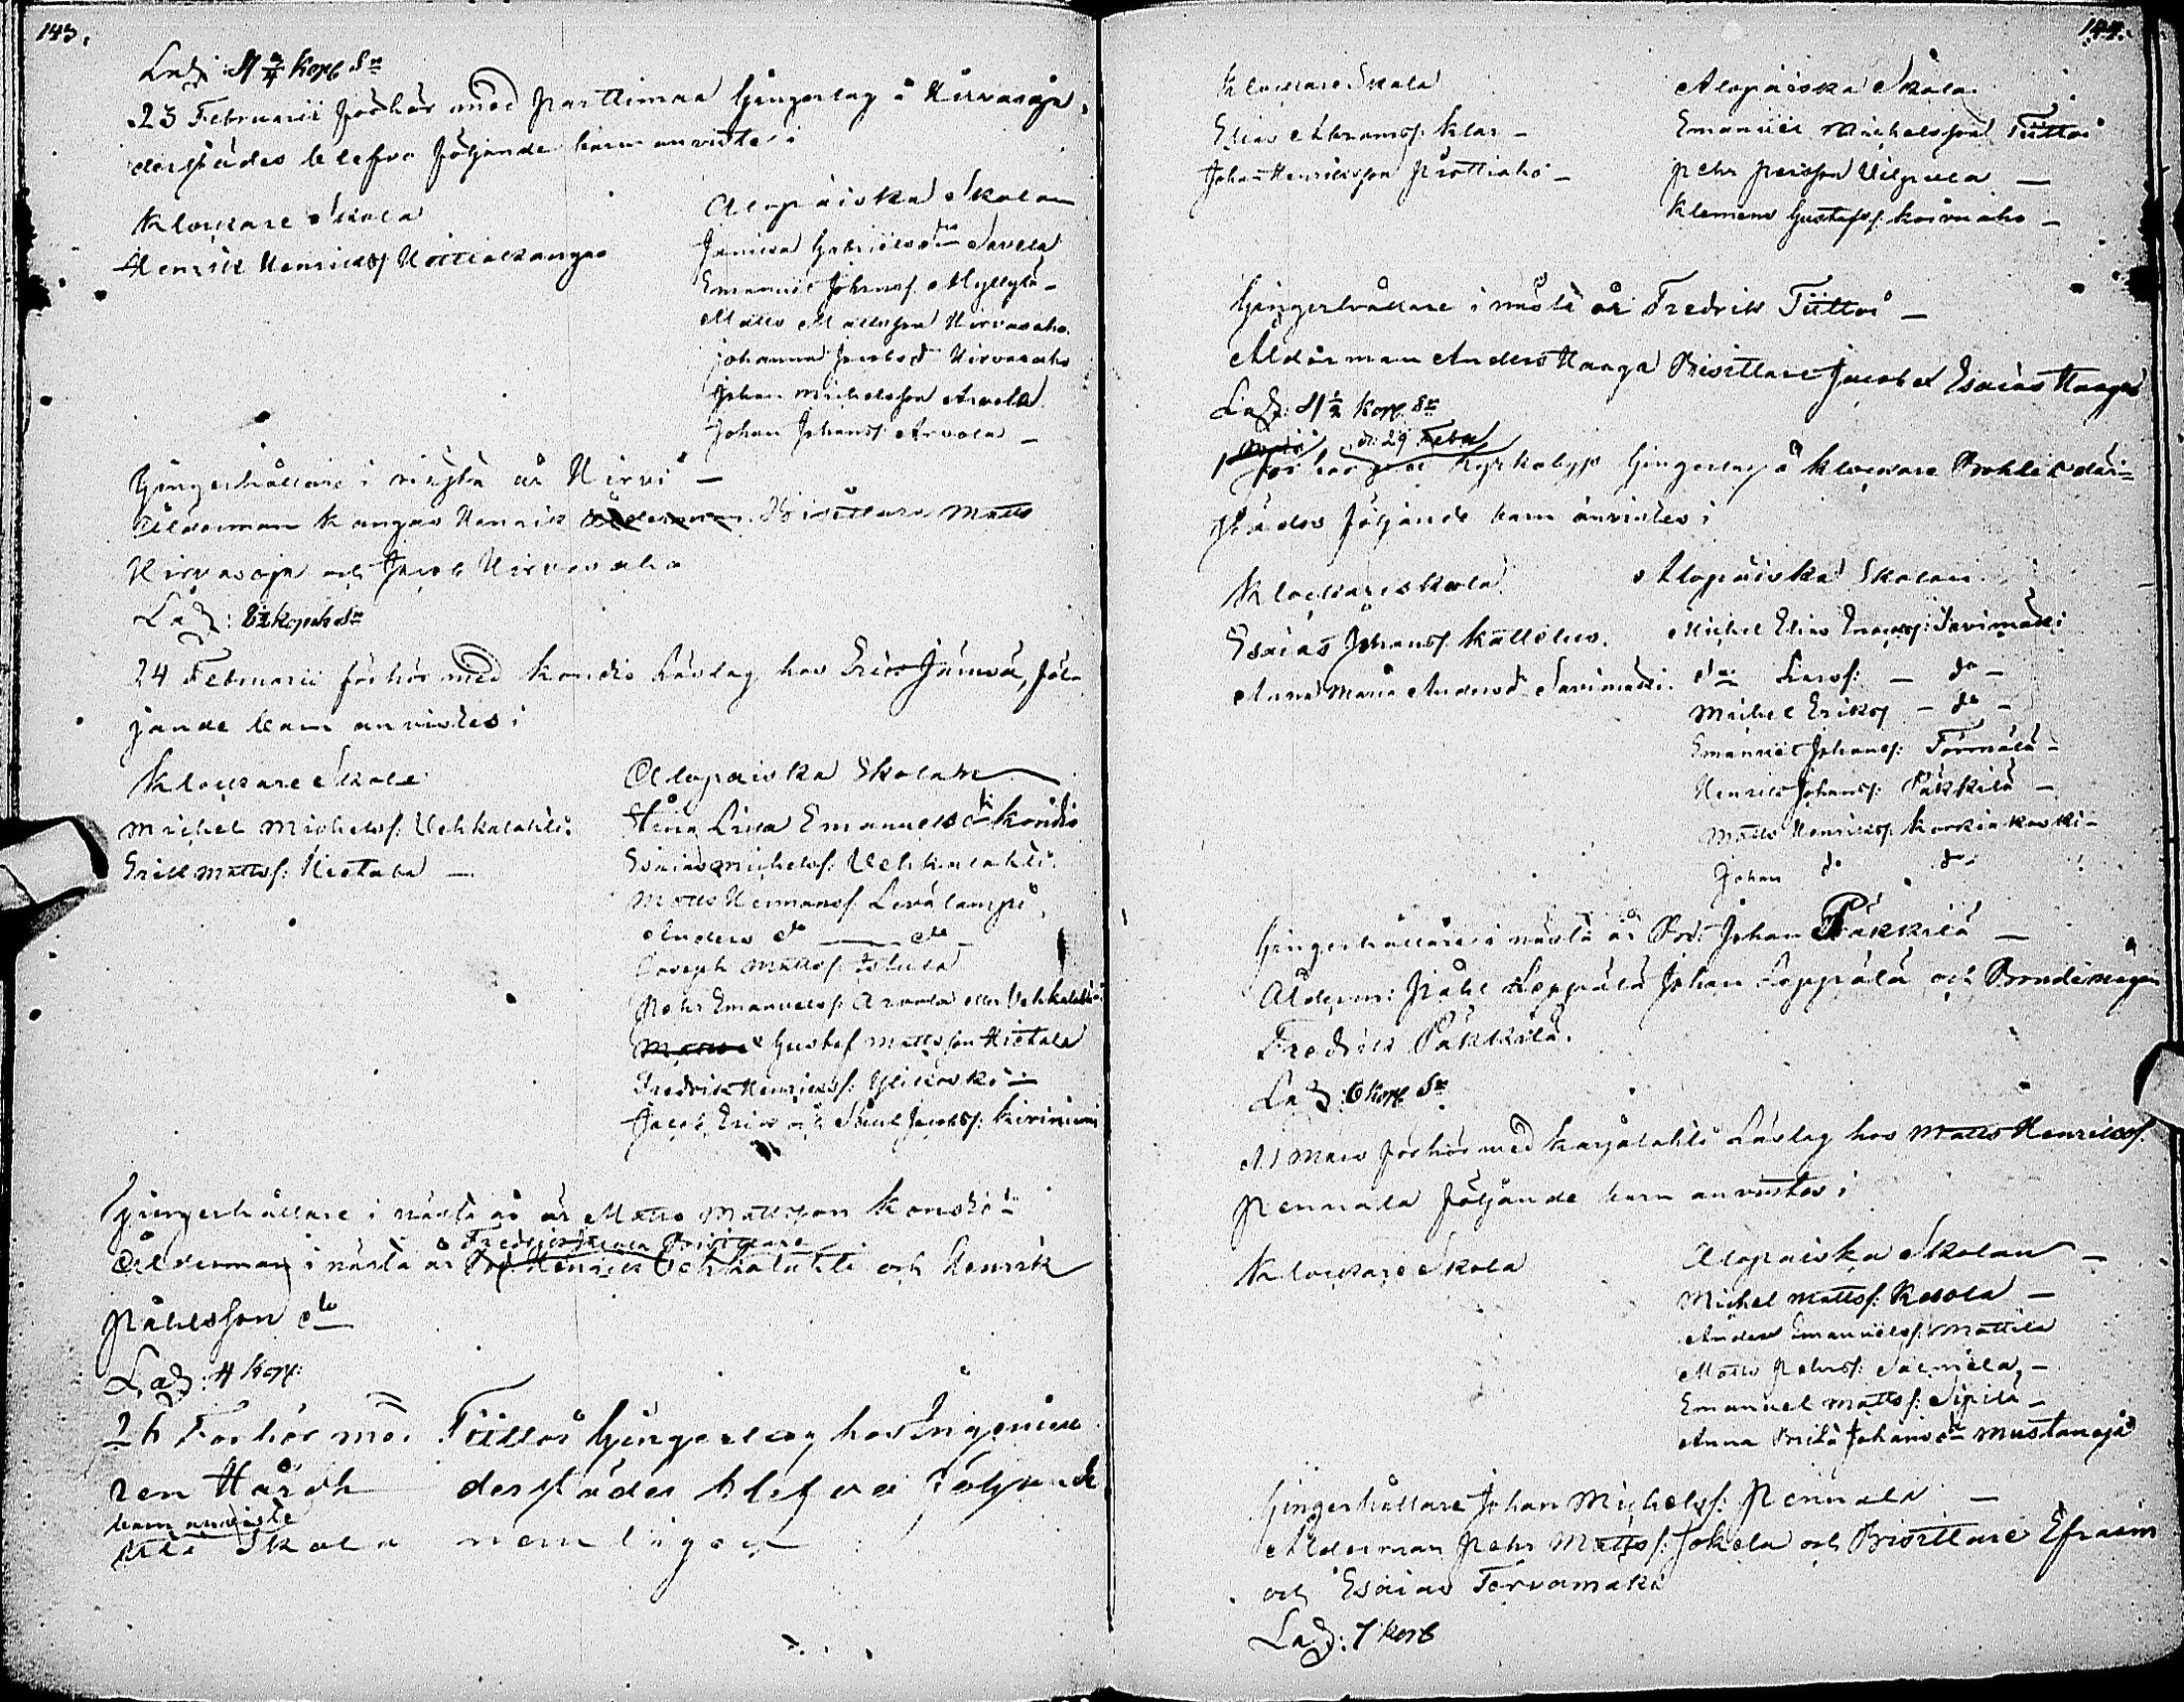 143.
Laz: 11 3/4 kop Sr
23 Februarii förhör med Parttimaa Gingerlag å Hirvasoja,
derstädes blefvo följande barn anviste i
Klockare Skola
Henrik Henrikss. Hietiekangas
Alopäiska Skolan
Janica Gabrielsdr Savela
Emanuel Johanss. Myllylä -
Matts Mattsson Hirvasaho
Johanna Jacobsdr Hirvasaho
Johan Michelsson Arvola
Johan Johanss. Arvola -
Gingerhållare i nästa år Hirvi -
Ålderman Kangas Henrik Bisittare Matts
Hirvasoja och Jacob Hirvasaho
Laz: 8 1/2 kopek Sr
24 Februarii förhör med Kondis Läslag hos Eric Jämsä, föl-
jande barn anvistes i
Klockare Skola
Michel Michelss: Vehkalahti.
Erik Mattss: Hietala -
Alopaiska Skolan
Stina Lisa Emanuelsdr Kondio
Esaias Michelss: Vehkalahti.
Matts Hermanss. Levälampi
Anders do - do -
Joseph Mattss:
Pehr Emanuelss: Arvola eller Vehkalahti
Gustaf Mattsson Hietala
Fredrik Henrikss: Ylikoski -
Jacob Eric och Paul Jacobss: Kiviniemi
Gingerhållare i nästa år är Matts Mattsson Kondio
Fredric Bisittare
Ålderman i nästa år Henrick Vehkalahti och Henrik
Påhlsson do
Laz: 4 Kop:
26 Förhör med Tiittoi Gingerlag hos Ingenieu
ren Hårdh derstädes blefvo följande
barn anviste
till Skola nemligen
144.
Klockare Skola
Elias Abramss: Klar -
Johan Henriksson Prottiaho -
Alopaiska Skola
Emanuel Michelsson Tiittoi
Pehr Persson Vilpula -
Klemens Gustafss: Koivuaho -
Gingerhållare i nästa år Fredrik Tiittoi -
Ålderman Anders Haaga Bisittare Jacob et Esaias Haaga
Laz: 11 1/2 Kop. Sr
d: 29 Febr
Förhör med Kyrkobys Gingerlag å Klockare Bohle där-
städes följande barn anvistes i
Klockareskola
Esaias Johanss: Kalliolus.
Anna Maria Andersdr Savimäki.
Alopaiska Skolan
Michel Elias Enocss: Savimäki
do Larss: - do -
Michel Erikss - do -
Emanuel Johanss: Törmälä -
Henrik Johanss: Päkkilä -
Matts Henrikss: Korkiakoski -
Johan do do
Gingerhållare i nästa år Bd: Johan Päkkilä -
Ålderm: Påhl Leppälä Johan Leppälä och Bondemågen
Fredrik Päkkilä.
Laz: 6 kop Sr
d 1 Mars förhör med Karjalahti Läslag hos Matts Henrikss.
Pennala följande barn anvistes i
Klockare Skola
Alopaiska Skolan -
Michel Mattss: Kesola -
Anders Emanuelss: Mattila
Matts Pehrss: Salmela -
Emanuel Mattss: Sipilä -
Anna Brita Johansdr Mustanoja
Gingerhållare Johan Michelss: Pennala -
Ålderman Pehr Mattss: Jokela och Bisittare Efraim
och Esaias Tervamäki
Laz: 7 kop